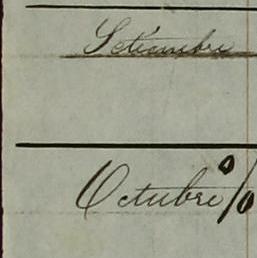 Setiembre
Octubre %